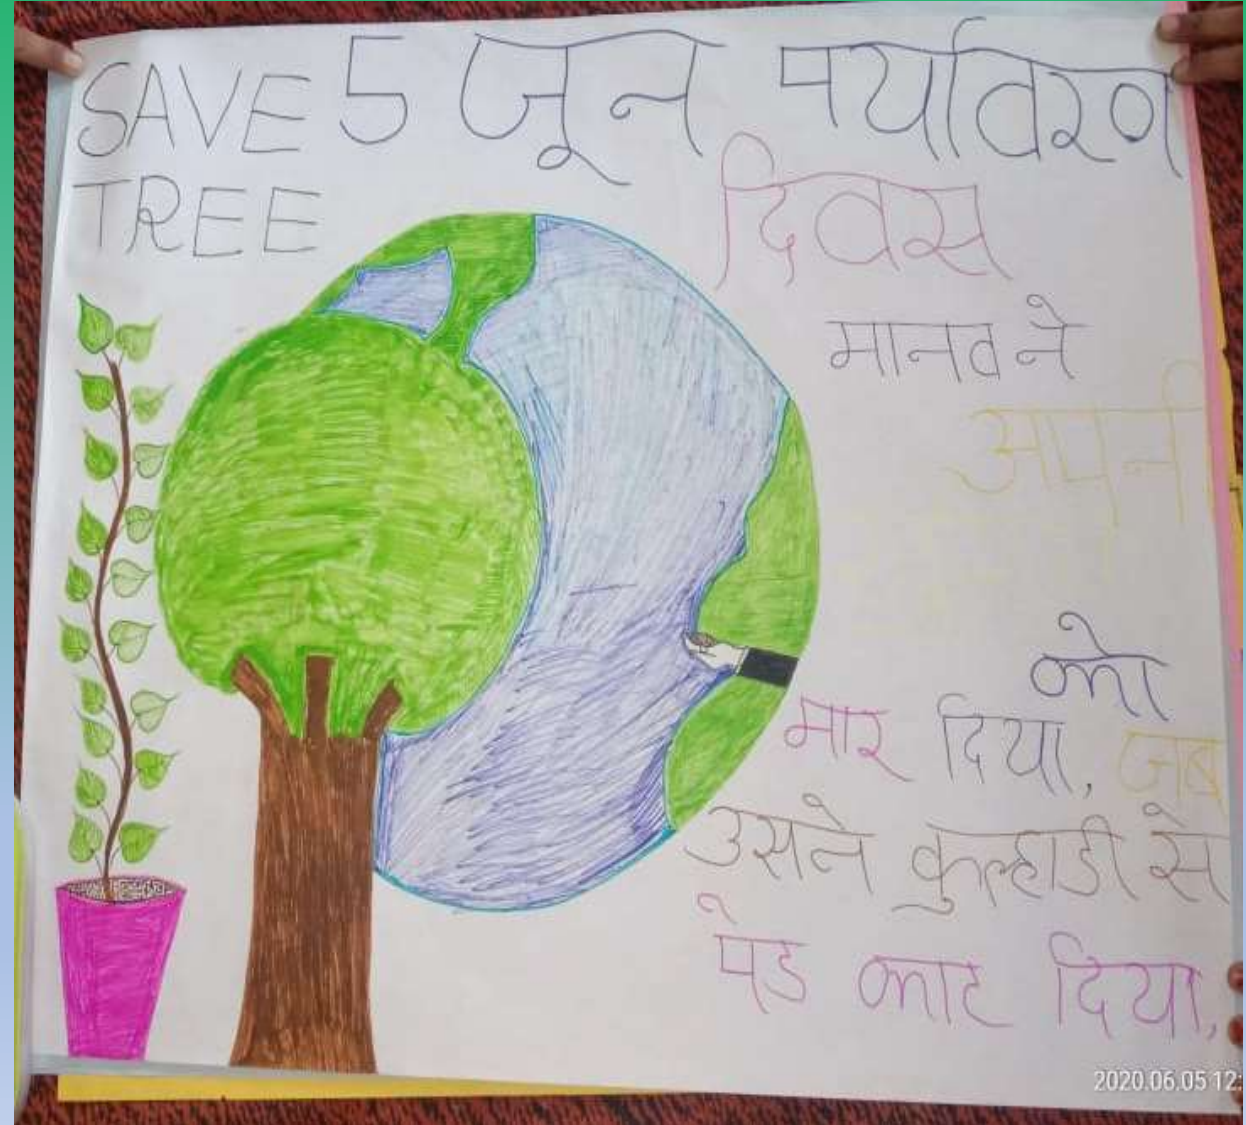 SAVE
TREE
5 जून पर्यावरण
दिवस
मानव ने
अपनी
को
मार दिया, जब
उसने कुल्हाडी से
पेड काट दिया,
2020.06.05 12: